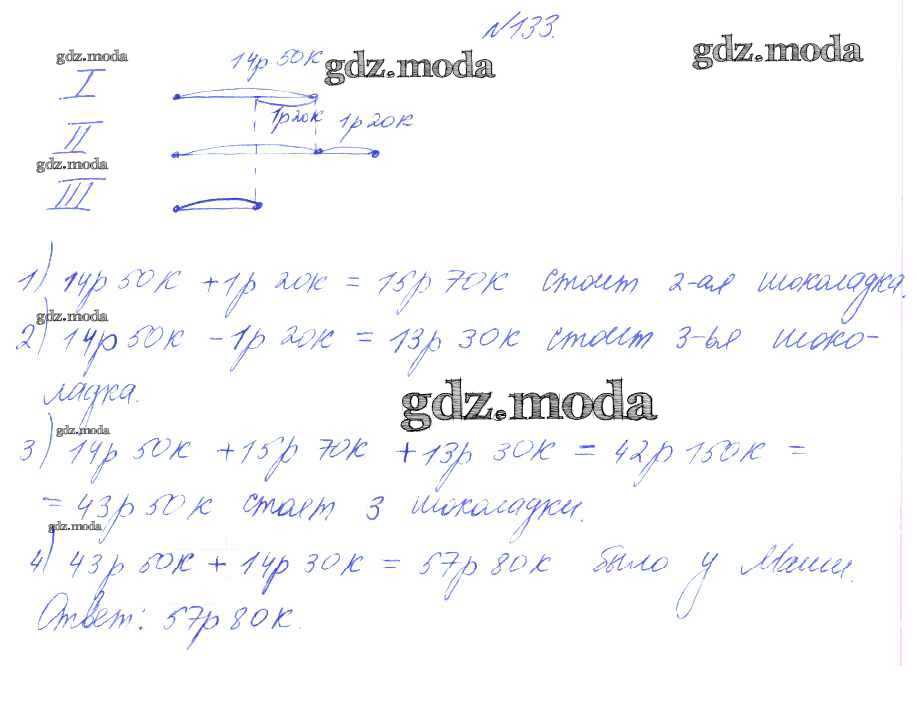 №133.
gdz.moda
14р 50к
gdz.moda
gdz.moda
I
1р20к
1р20к
II
gdz.moda
III
1) 14р 50к + 1р 20к = 15р 70к стоит 2-ая шоколадка.
gdz.moda
2) 14р 50к - 1р 20к = 13р 30к стоит 3-ья шоко-
ладка.
gdz.moda
gdz.moda
3) 14р 50к + 15р 70к + 13р 30к = 42р 150к =
= 43р 50к стоят 3 шоколадки.
gdz.moda
4) 43р 50к + 14р 30к = 57р 80к было у Маши.
Ответ: 57р 80к.